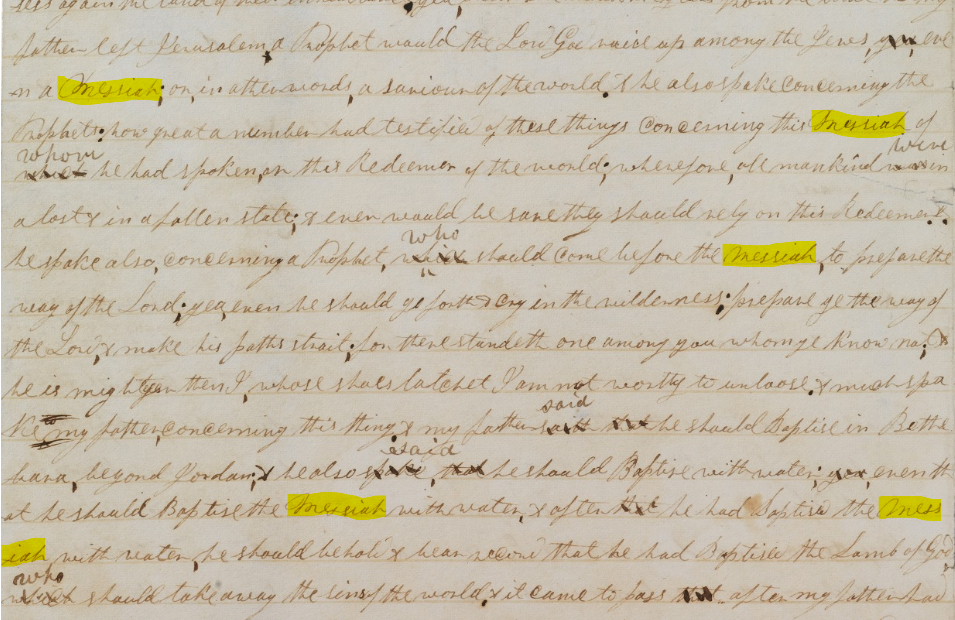 sess again the land of from the time my
father left Jerusalem, a Prophet would the Lord God raise up among the Jews, yea, eve
n a Messiah; or, in other words, a saviour of the world. & he also spake concerning the
Prophets; how great a number had testified of these things concerning this Messiah of
whom were
which he had spoken, or this Redeemer of the world; wherefore, all mankind was in
a lost & in a fallen state; & ever would be save they should rely on this Redeemer. &
who
he spake also, concerning a Prophet, which should come before the Messiah, to prepare the
way of the Lord; yea, even he should go forth & cry in the wilderness; prepare ye the way of
the Lord, & make his paths strait; for there standeth one among you whom ye know not; &
he is mightyer then I, whose shoes latchet I am not worthy to unloose. & much spa
said
ke my father, concerning this thing. & my father saith that he should Baptise in Betha
said
bara, beyond Jordan; & he also spake, that he should Baptise with water; yea, even th
at he should Baptise the Messiah with water, & after that he had Baptised the Mess
iah with water, he should behold & bear record that he had Baptised the Lamb of God
who
which should take away the sins of the world. & it came to pass that after my father had